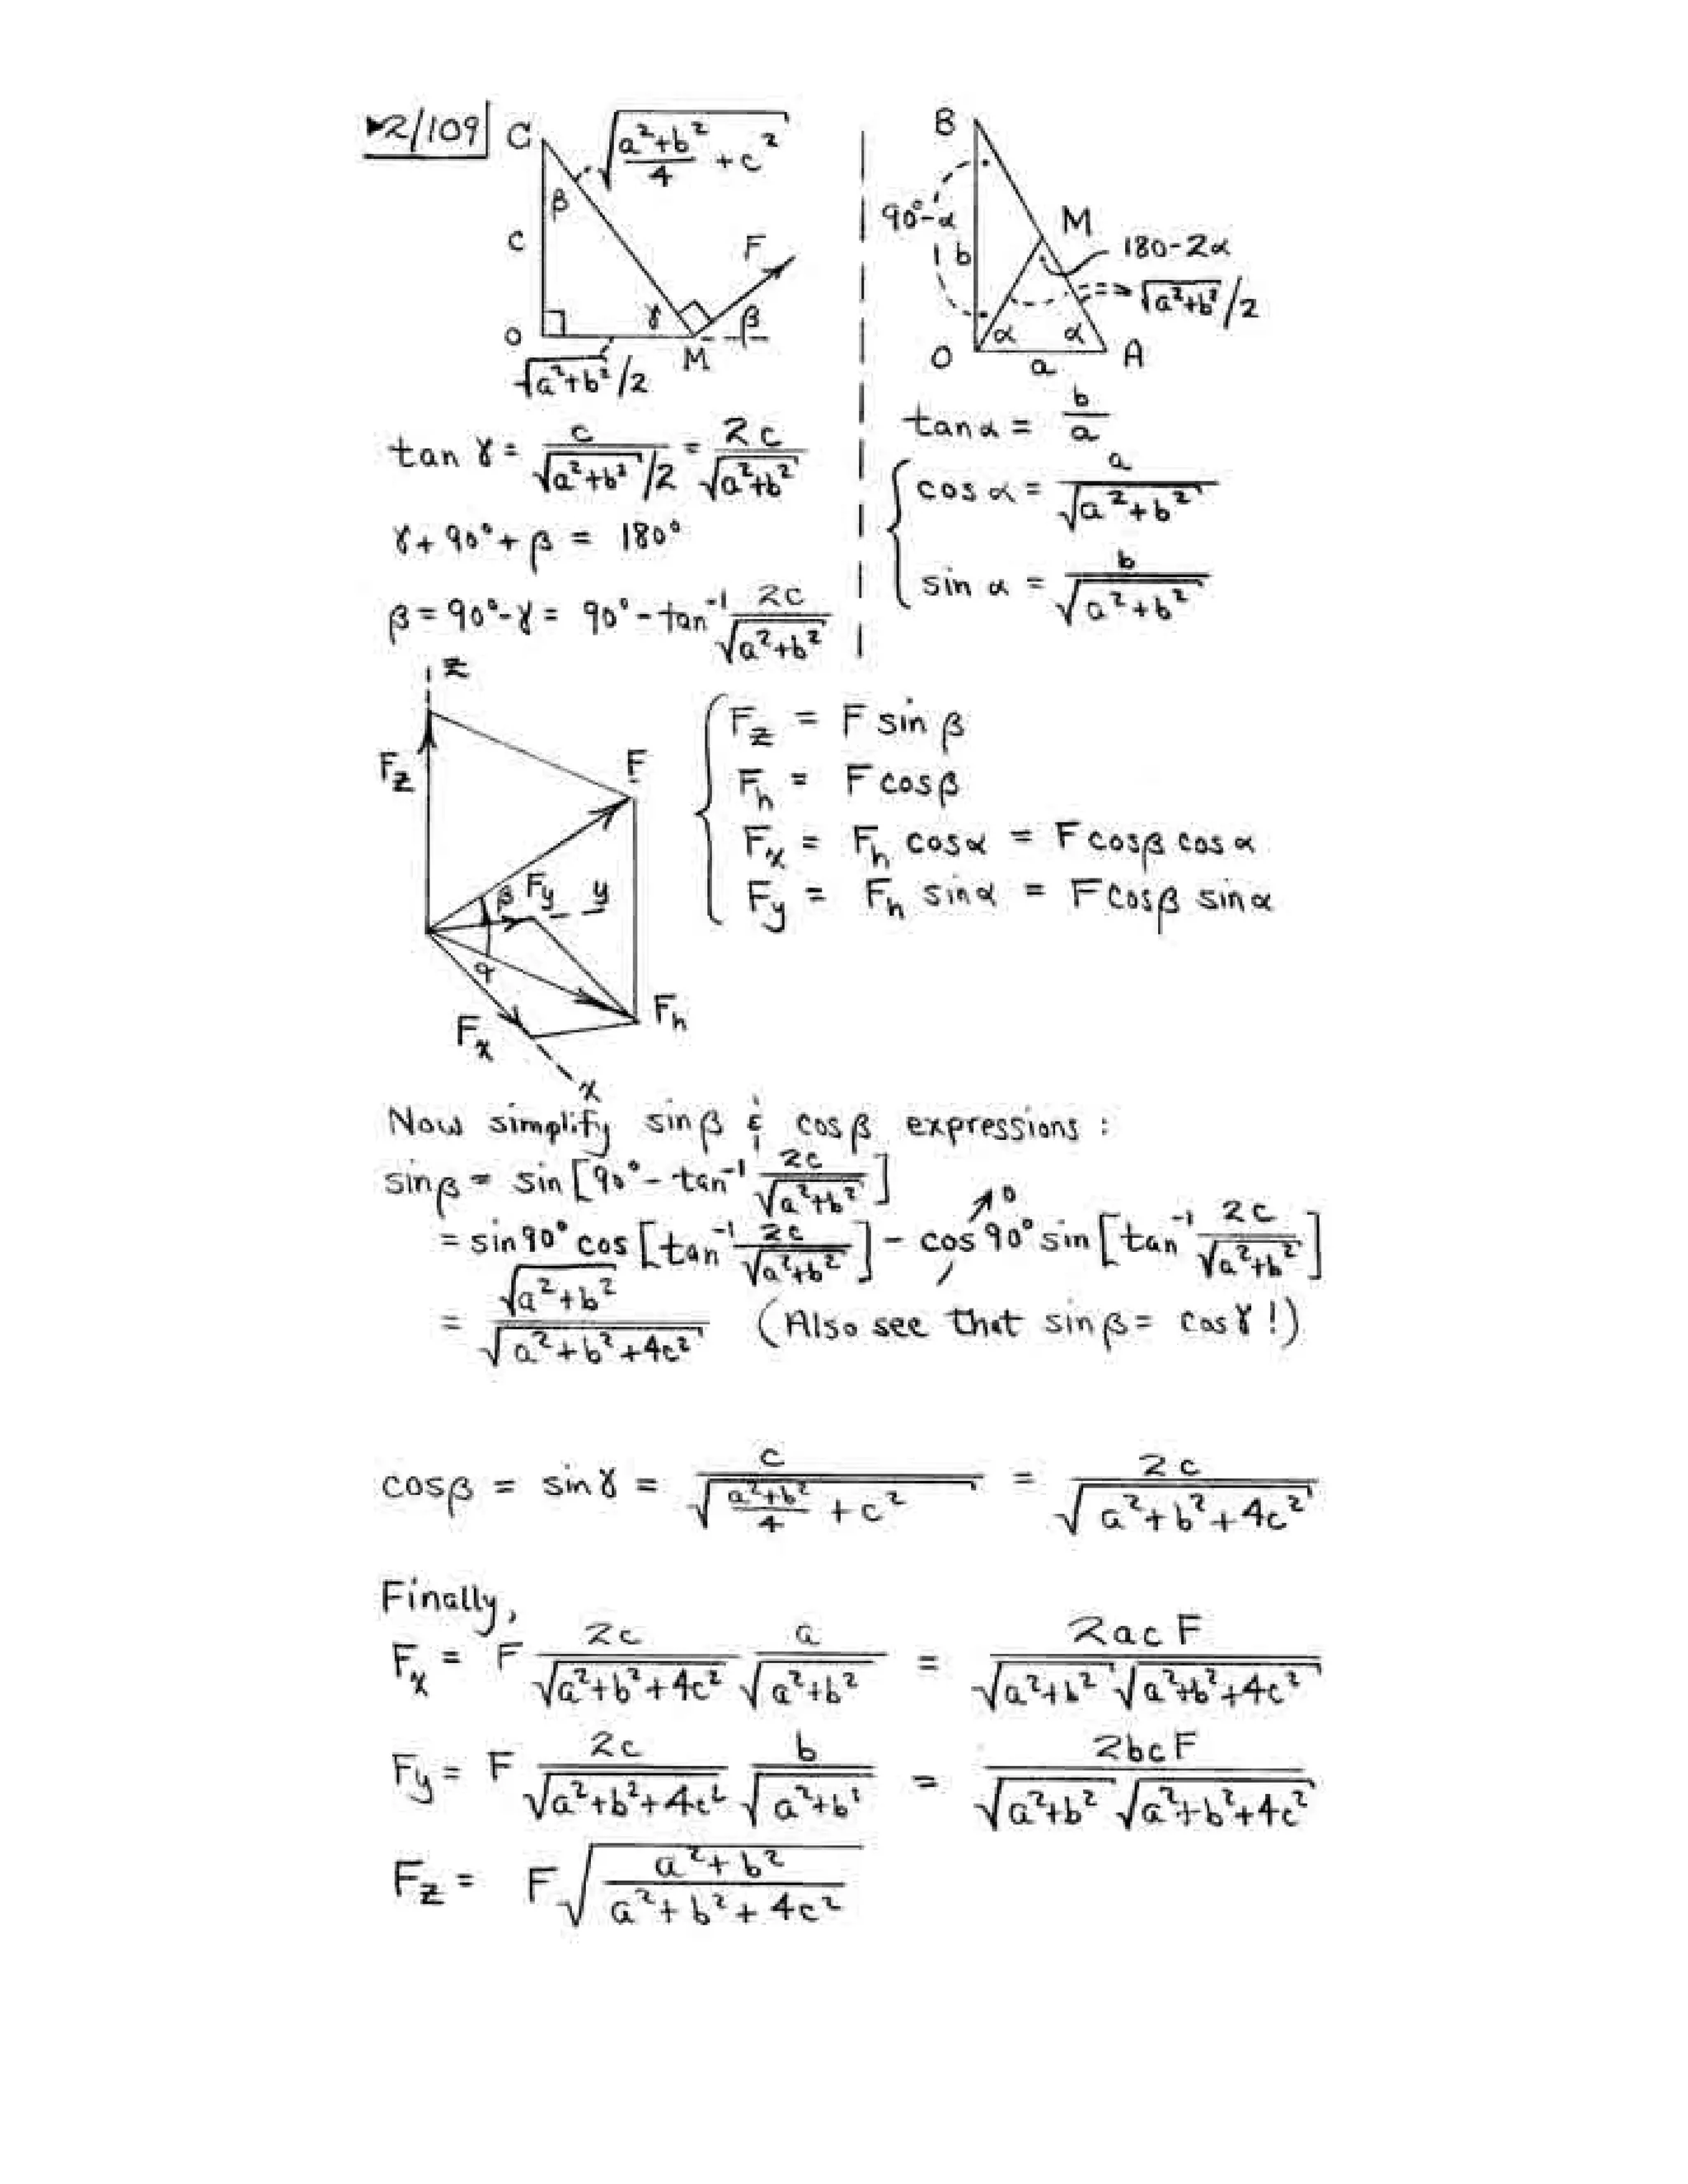 ▸2/109
C
√((a²+b²)/4 + c²)
β
c
F
γ
β
O
M
√(a²+b²)/2
B
90°-α
M
b
180-2α
√(a²+b²)/2
α
α
O
a
A
tan γ = c/(√(a²+b²)/2) = 2c/√(a²+b²)
γ + 90° + β = 180°
β = 90°-γ = 90° - tan⁻¹ 2c/√(a²+b²)
tan α = b/a
cos α = a/√(a²+b²)
sin α = b/√(a²+b²)
z
F_z
F
β
F_y
y
α
F_h
F_x
x
F_z = F sin β
F_h = F cos β
F_x = F_h cos α = F cos β cos α
F_y = F_h sin α = F cos β sin α
Now simplify sin β & cos β expressions :
sin β = sin [90° - tan⁻¹ 2c/√(a²+b²)]
= sin 90° cos [tan⁻¹ 2c/√(a²+b²)] - cos 90° sin [tan⁻¹ 2c/√(a²+b²)]
0
= √(a²+b²)/√(a²+b²+4c²) (Also see that sin β = cos γ !)
cos β = sin γ = c/√((a²+b²)/4 + c²) = 2c/√(a²+b²+4c²)
Finally,
F_x = F 2c/√(a²+b²+4c²) a/√(a²+b²) = 2acF/(√(a²+b²) √(a²+b²+4c²))
F_y = F 2c/√(a²+b²+4c²) b/√(a²+b²) = 2bcF/(√(a²+b²) √(a²+b²+4c²))
F_z = F √((a²+b²)/(a²+b²+4c²))